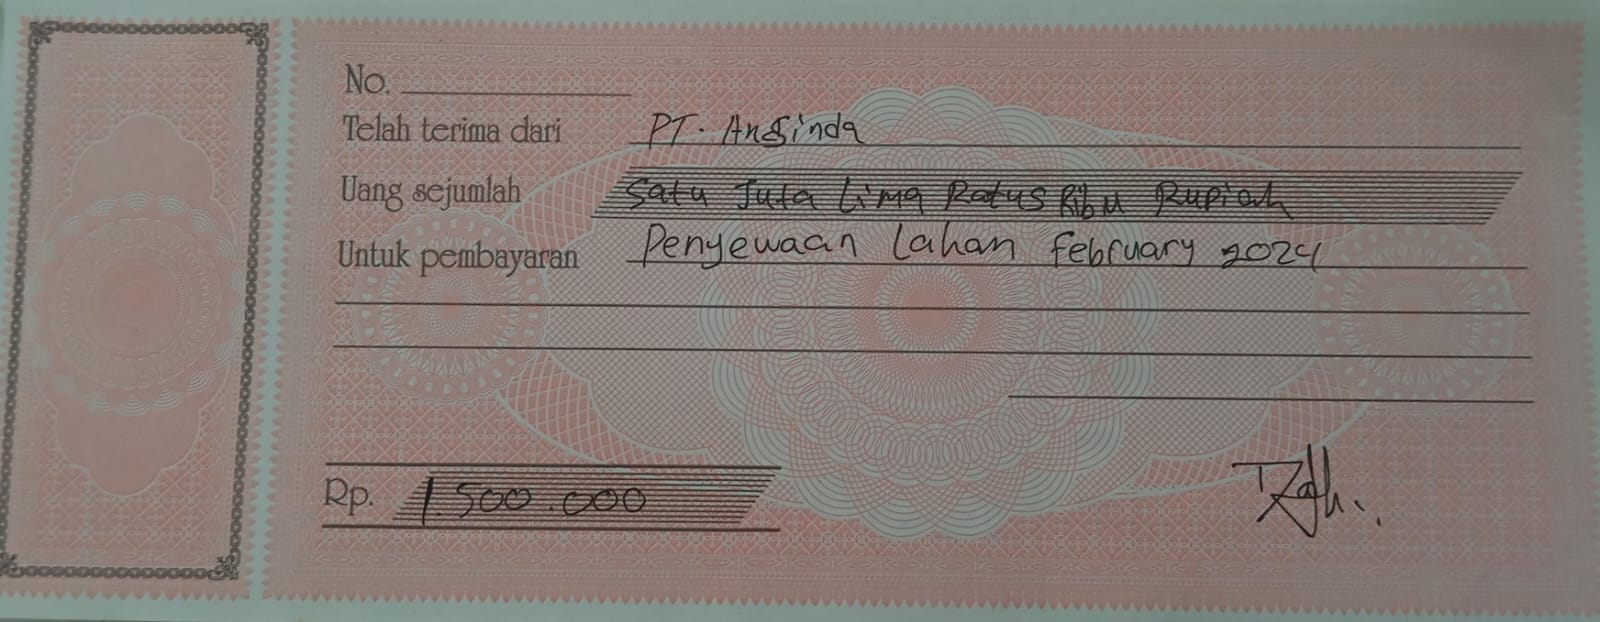 No.
Telah terima dari PT. Anginda
Uang sejumlah Satu Juta Lima Ratus Ribu Rupiah
Untuk pembayaran Penyewaan Lahan February 2024
Rp. 1.500.000